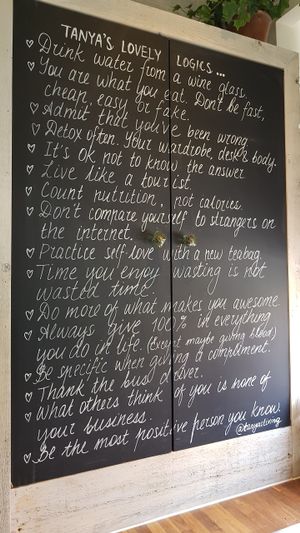 TANYA'S LOVELY LOGICS ...
♡ Drink water from a wine glass.
♡ You are what you eat. Don't be fast,
cheap, easy or fake.
♡ Admit that you've been wrong
♡ Detox often. Your wardrobe, desk & body.
♡ It's ok not to know the answer
♡ Live like a tourist
♡ Count nutrition, not calories.
♡ Don't compare yourself to strangers on
the internet.
♡ Practice self-love with a new teabag.
♡ Time you enjoy wasting is not
wasted time.
♡ Do more of what makes you awesome
♡ Always give 100% in everything
you do in life. (Except maybe giving blood)
♡ Be specific when giving a compliment.
♡ Thank the bus driver.
♡ What others think of you is none of
your business.
♡ Be the most positive person you know